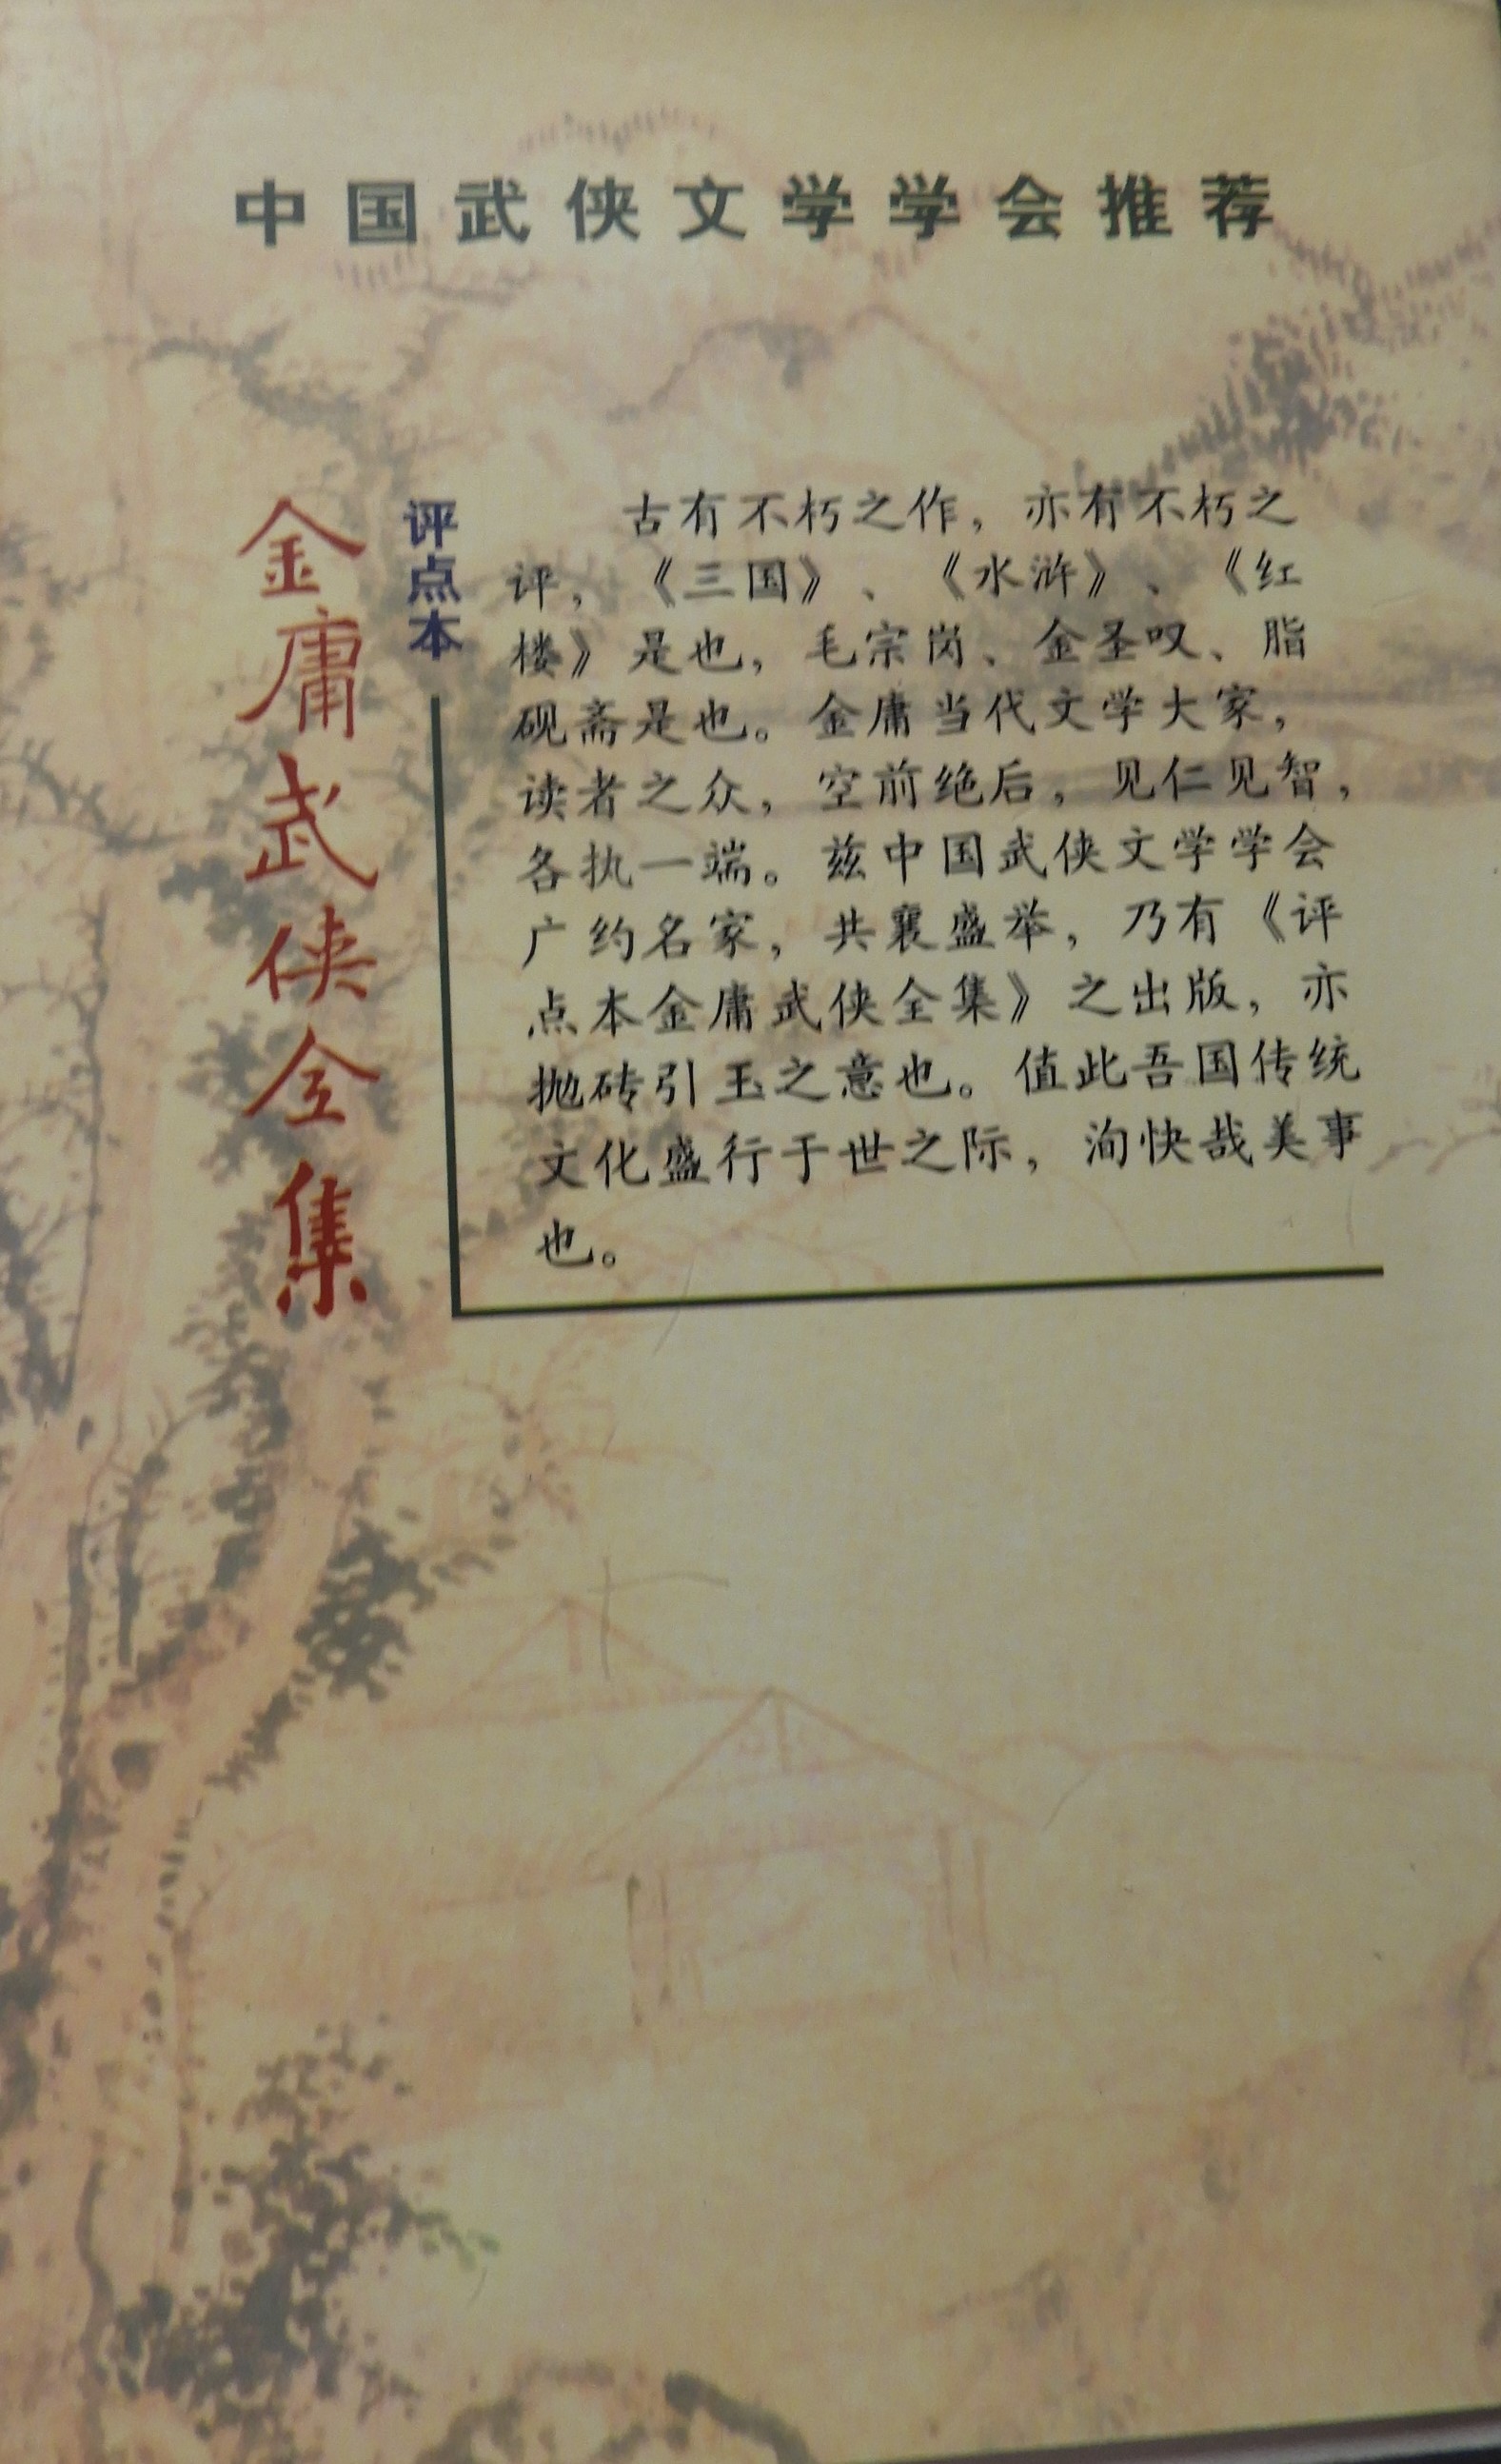 中国武侠文学学会推荐
金庸武侠全集
评点本
古有不朽之作，亦有不朽之
评，《三国》、《水浒》、《红
楼》是也，毛宗岗、金圣叹、脂
砚斋是也。金庸当代文学大家，
读者之众，空前绝后，见仁见智，
各执一端。兹中国武侠文学学会
广约名家，共襄盛举，乃有《评
点本金庸武侠全集》之出版，亦
抛砖引玉之意也。值此吾国传统
文化盛行于世之际，洵快哉美事
也。